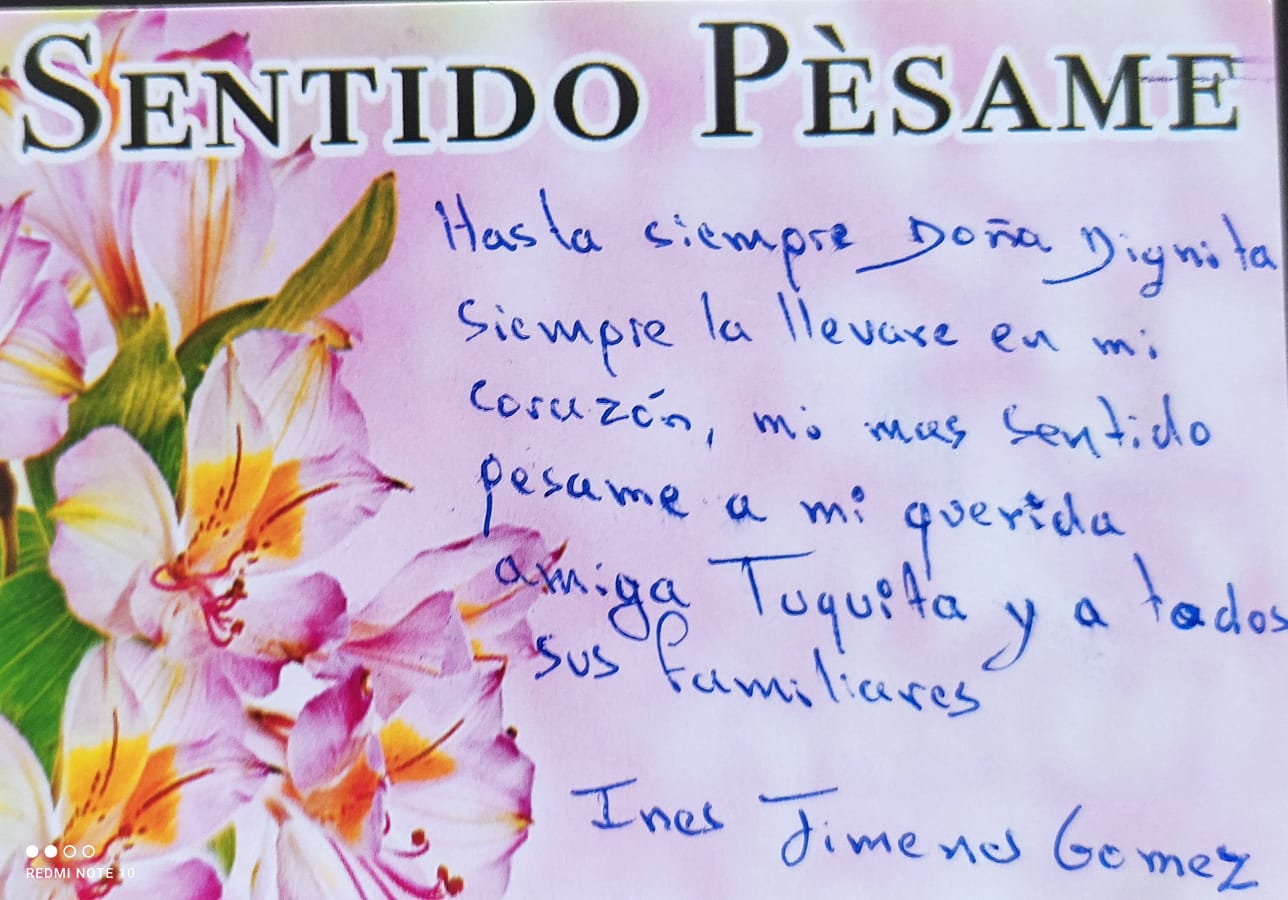 SENTIDO PÈSAME
Hasta siempre Doña Dignita
siempre la llevare en mi
corazón, mi mas sentido
pesame a mi querida
amiga Tuquita y a todos
sus familiares
Ines Jimeno Gomez
REDMI NOTE 10